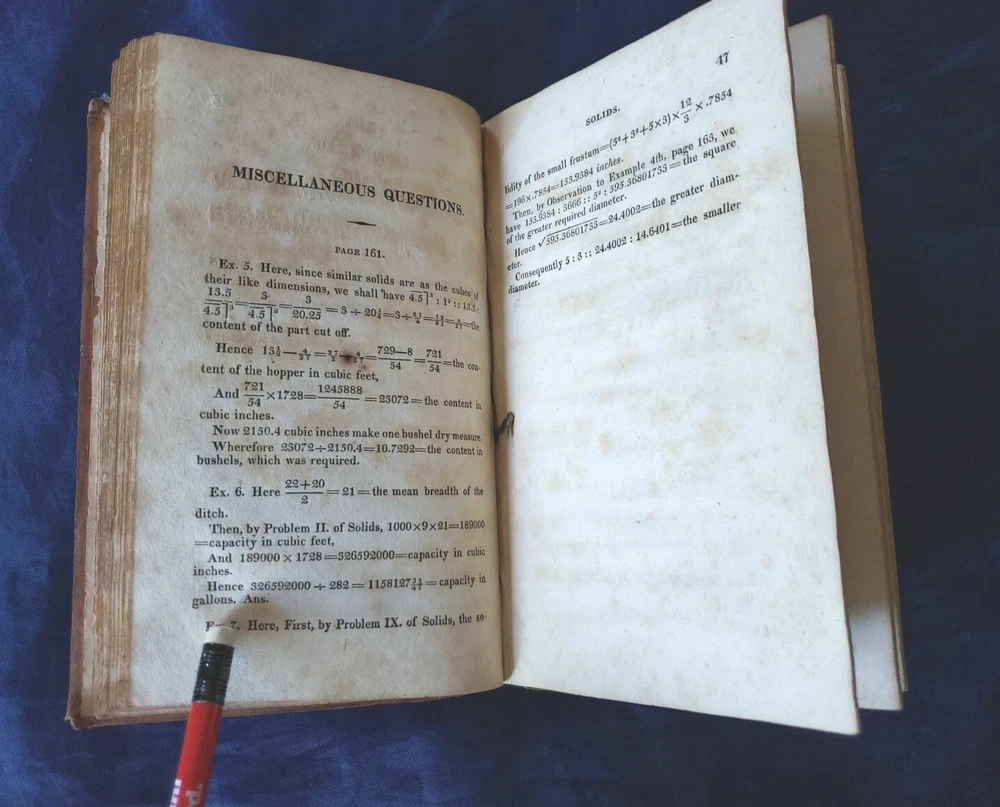 MISCELLANEOUS QUESTIONS.
PAGE 161.
Ex. 5. Here, since similar solids are as the cubes of
their like dimensions, we shall have 4.5]³ : 1³ :: 13.5 :
13.5/4.5]³ = 3/4.5]² = 3/20.25 = 3 ÷ 20¼ = 3 ÷ 81/4 = 12/81 = 4/27 = the
content of the part cut off.
Hence 13½ — 4/27 = 27/2 — 4/27 = 729—8/54 = 721/54 = the con-
tent of the hopper in cubic feet,
And 721/54 × 1728 = 1245888/54 = 23072 = the content in
cubic inches.
Now 2150.4 cubic inches make one bushel dry measure.
Wherefore 23072÷2150.4=10.7292=the content in
bushels, which was required.
Ex. 6. Here 22+20/2 = 21 = the mean breadth of the
ditch.
Then, by Problem II. of Solids, 1000×9×21=189000
=capacity in cubic feet,
And 189000 × 1728=326592000=capacity in cubic
inches.
Hence 326592000 ÷ 282 = 1158127 = capacity in
gallons. Ans.
7. Here, First, by Problem IX. of Solids, the so-
47
SOLIDS.
lidity of the small frustum=(5²+3²+5×3)× 12/3 × .7854
=196×.7854=153.9384 inches.
Then, by Observation to Example 4th, page 163, we
have 153.9384 : 3666 :: 5² : 595.36801733 = the square
of the greater required diameter.
Hence √595.36801733=24.4002=the greater diam-
eter.
Consequently 5 : 3 :: 24.4002 : 14.6401=the smaller
diameter.